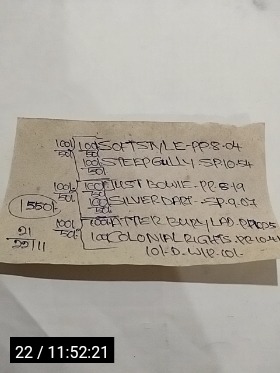 100/50 100/50 SOFTSTYLE-PP.8-04
100/50 STEEPGULLY-SP.10-54
100/50 100/50 JUST BOWIE-PP.8-19
100/50 SILVER DART-SP-9.07
1550/-
100/50 100 ATTER BURY LAD-
100 COLONIAL RIGHTS-PP.10-
21
22/11
101-D-WIP.101-
22 / 11:52:21